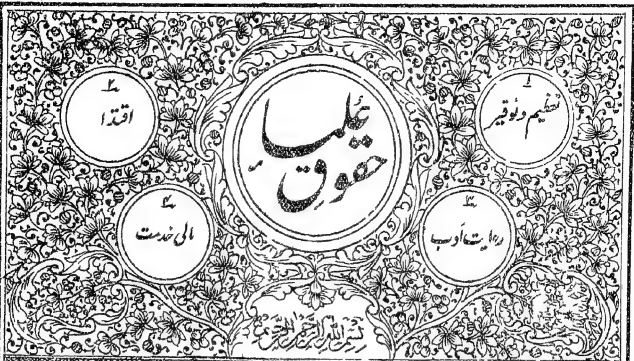 حقوق علما
۱
تعظیم و توقیر
۲
اقتدا
۳
رعایت ادب
۴
مالی خدمت
بسم اللہ الرحمن الرحیم